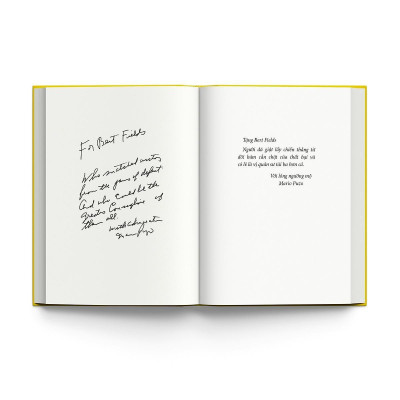 For Bert Fields
Who snatched victory
from the jaws of defeat
And who could be the
greatest Consigliere of
them all.
with admiration
Mario Puzo
Tặng Bert Fields
Người đã giật lấy chiến thắng từ
đôi hàm cắn chặt của thất bại và
có lẽ là vị quân sư tài ba hơn cả.
Với lòng ngưỡng mộ
Mario Puzo